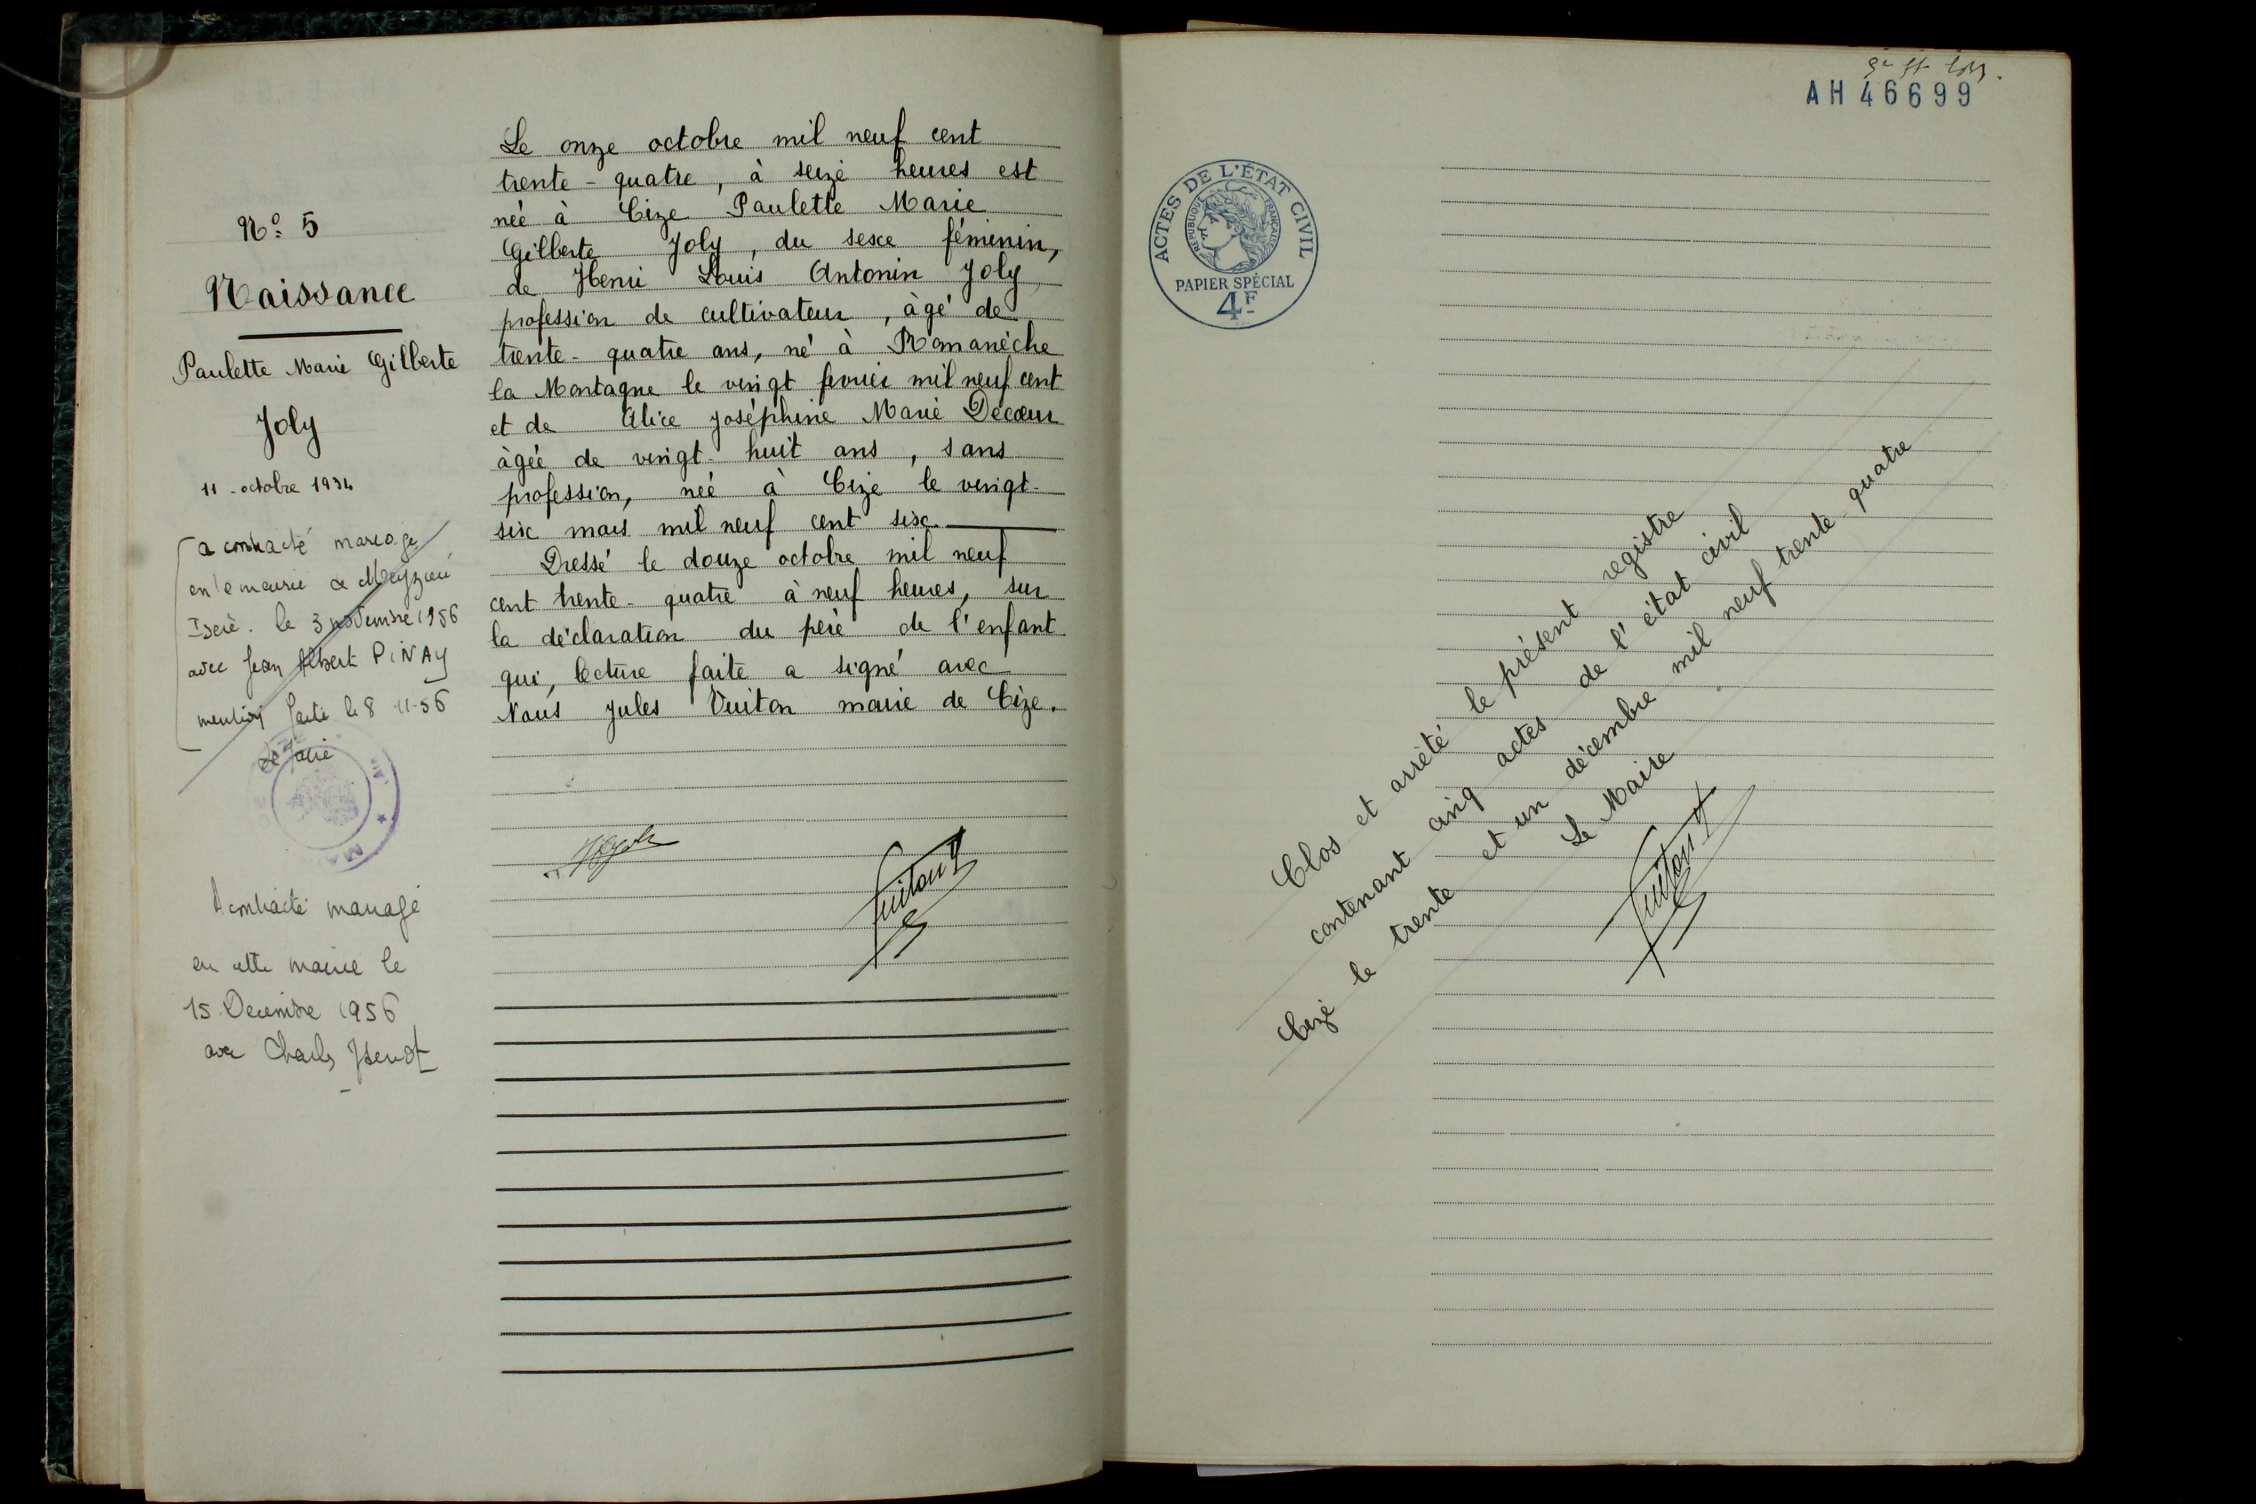 N° 5
Naissance
Paulette Marie Gilberte
Joly
11 - octobre 1934
a contracté mariage
en le mairie de Meyzieu
Isère. le 3 novembre 1956
avec Jean Albert PINAY
mention faite le 8-11-56
A contracté mariage
en cette mairie le
15 Decembre 1956
avec Charles
Le onze octobre mil neuf cent
trente-quatre, à seize heures est
née à Cize Paulette Marie
Gilberte Joly, du sexe féminin,
de Henri Louis Antonin Joly
profession de cultivateur, âgé de
trente-quatre ans, né à Romanèche
la Montagne le vingt fevrier mil neuf cent
et de Alice Joséphine Marie Decœur
âgée de vingt-huit ans, sans
profession, née à Cize le vingt-
six mars mil neuf cent six.
Dressé le douze octobre mil neuf
cent trente-quatre à neuf heures, sur
la déclaration du père de l'enfant
qui, lecture faite a signé avec
Nous Jules Vuiton maire de Cize.
Vuiton
AH 46699
ACTES DE L'ÉTAT CIVIL
RÉPUBLIQUE FRANÇAISE
PAPIER SPÉCIAL
4F
Clos et arrêté le présent registre
contenant cinq actes de l'état civil
Cize le trente et un décembre mil neuf trente-quatre
Le Maire
Vuiton